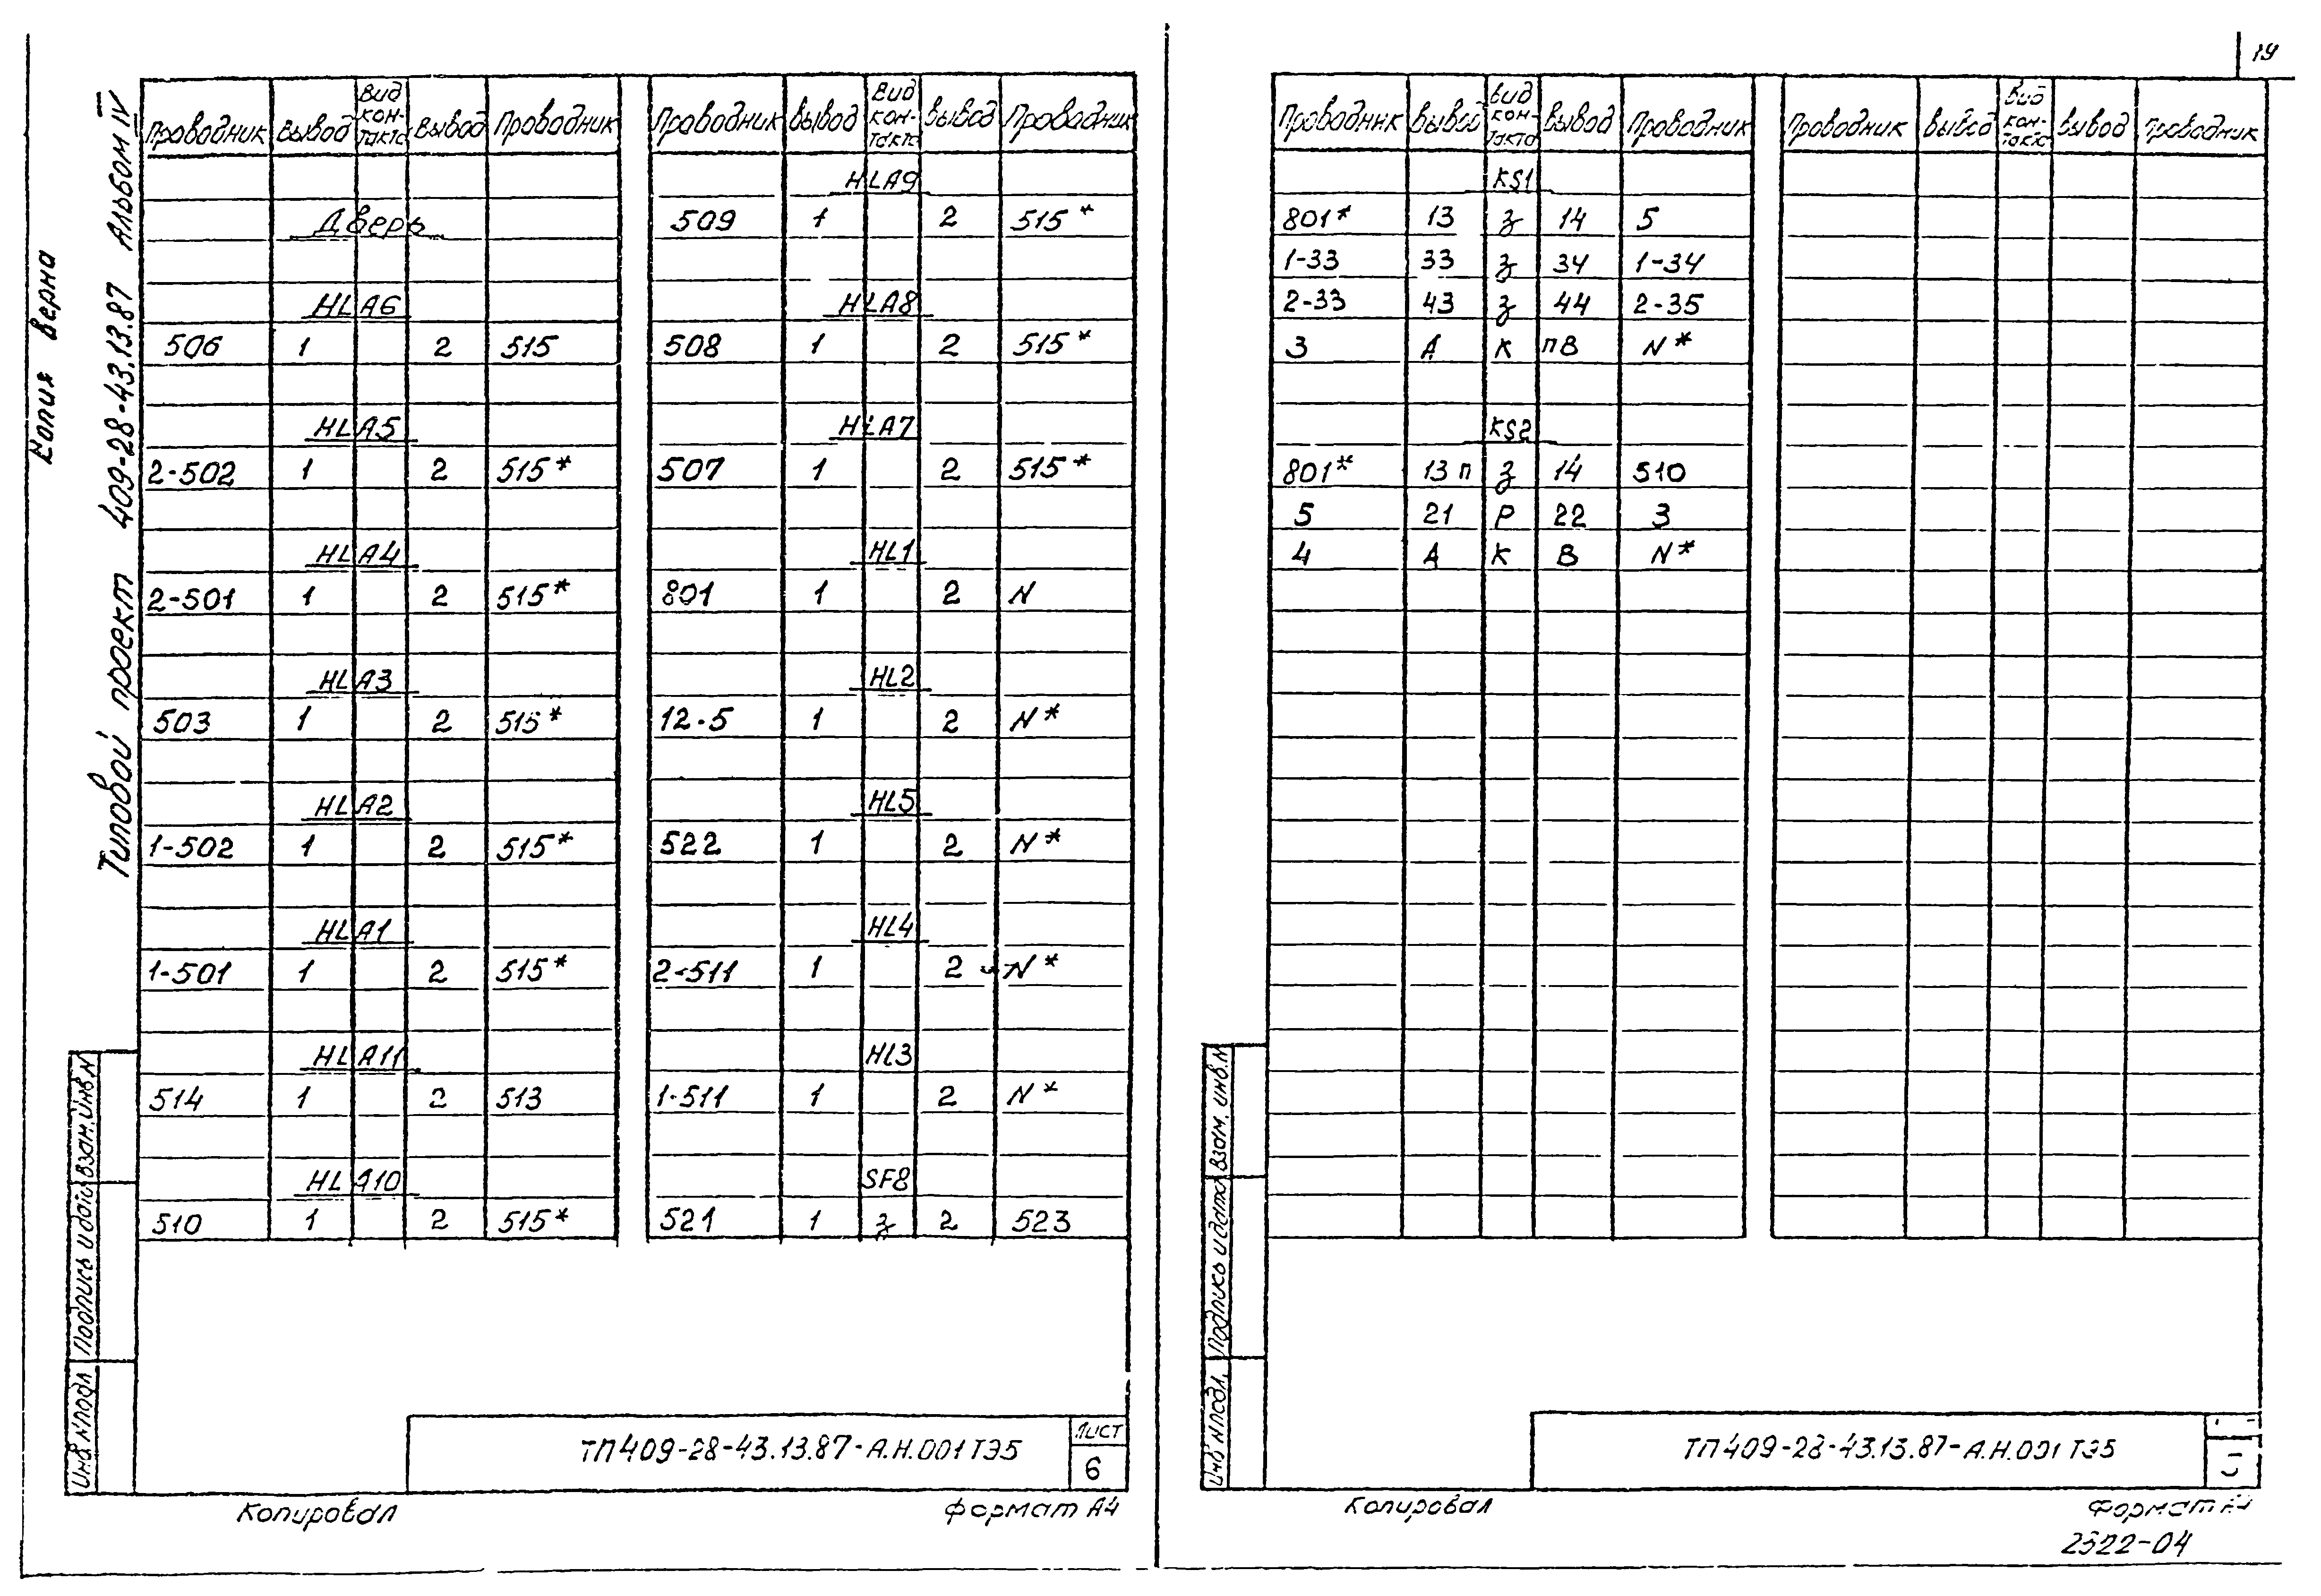 19
Копия верна
Типовой проект 409-28-43.13.87 Альбом IV
Проводник Вывод Вид кон-такта Вывод Проводник
Дверь
HLA6
506 1 2 515
HLA5
2-502 1 2 515*
HLA4
2-501 1 2 515*
HLA3
503 1 2 515*
HLA2
1-502 1 2 515*
HLA1
1-501 1 2 515*
HLA11
514 1 2 513
HLA10
510 1 2 515*
Проводник Вывод Вид кон-такта Вывод Проводник
HLA9
509 1 2 515*
HLA8
508 1 2 515*
HLA7
507 1 2 515*
HL1
801 1 2 N
HL2
12-5 1 2 N*
HL5
522 1 2 N*
HL4
2-511 1 2 N*
HL3
1-511 1 2 N*
SF8
521 1 з 2 523
Инв.№подл Подпись и дата Взам.инв.№
ТП409-28-43.13.87-А.Н.001ТЭ5
Лист
6
Копировал
Формат А4
Проводник Вывод Вид кон-такта Вывод Проводник
KS1
801* 13 з 14 5
1-33 33 з 34 1-34
2-33 43 з 44 2-35
3 А К пВ N*
KS2
801* 13п з 14 510
5 21 Р 22 3
4 А К В N*
Проводник Вывод Вид кон-такта Вывод Проводник
Инв.№подл. Подпись и дата Взам.инв.№
ТП409-28-43.13.87-А.Н.001ТЭ5
Копировал
Формат А4
2322-04